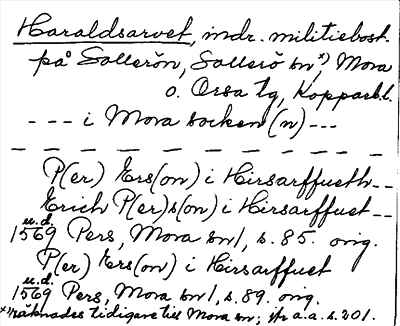 Haraldsarvet, indr. militiebost.
på Sollerön, Sollerö sn*) Mora
o. Orsa tg, Kopparb.l.
--- i Mora socken (n) ---
P(er) Ers(on) i Hirsarffueth--
Erich P(er)s(on) i Hirsarffuet--
u.d.
1569 Pers, Mora sn 1, s. 85. orig.
P(er) Ers(on) i Hirsarffuet
u.d.
1569 Pers, Mora sn 1, s. 89. orig.
*) räknades tidigare till Mora sn; jfr a.a. s. 201.